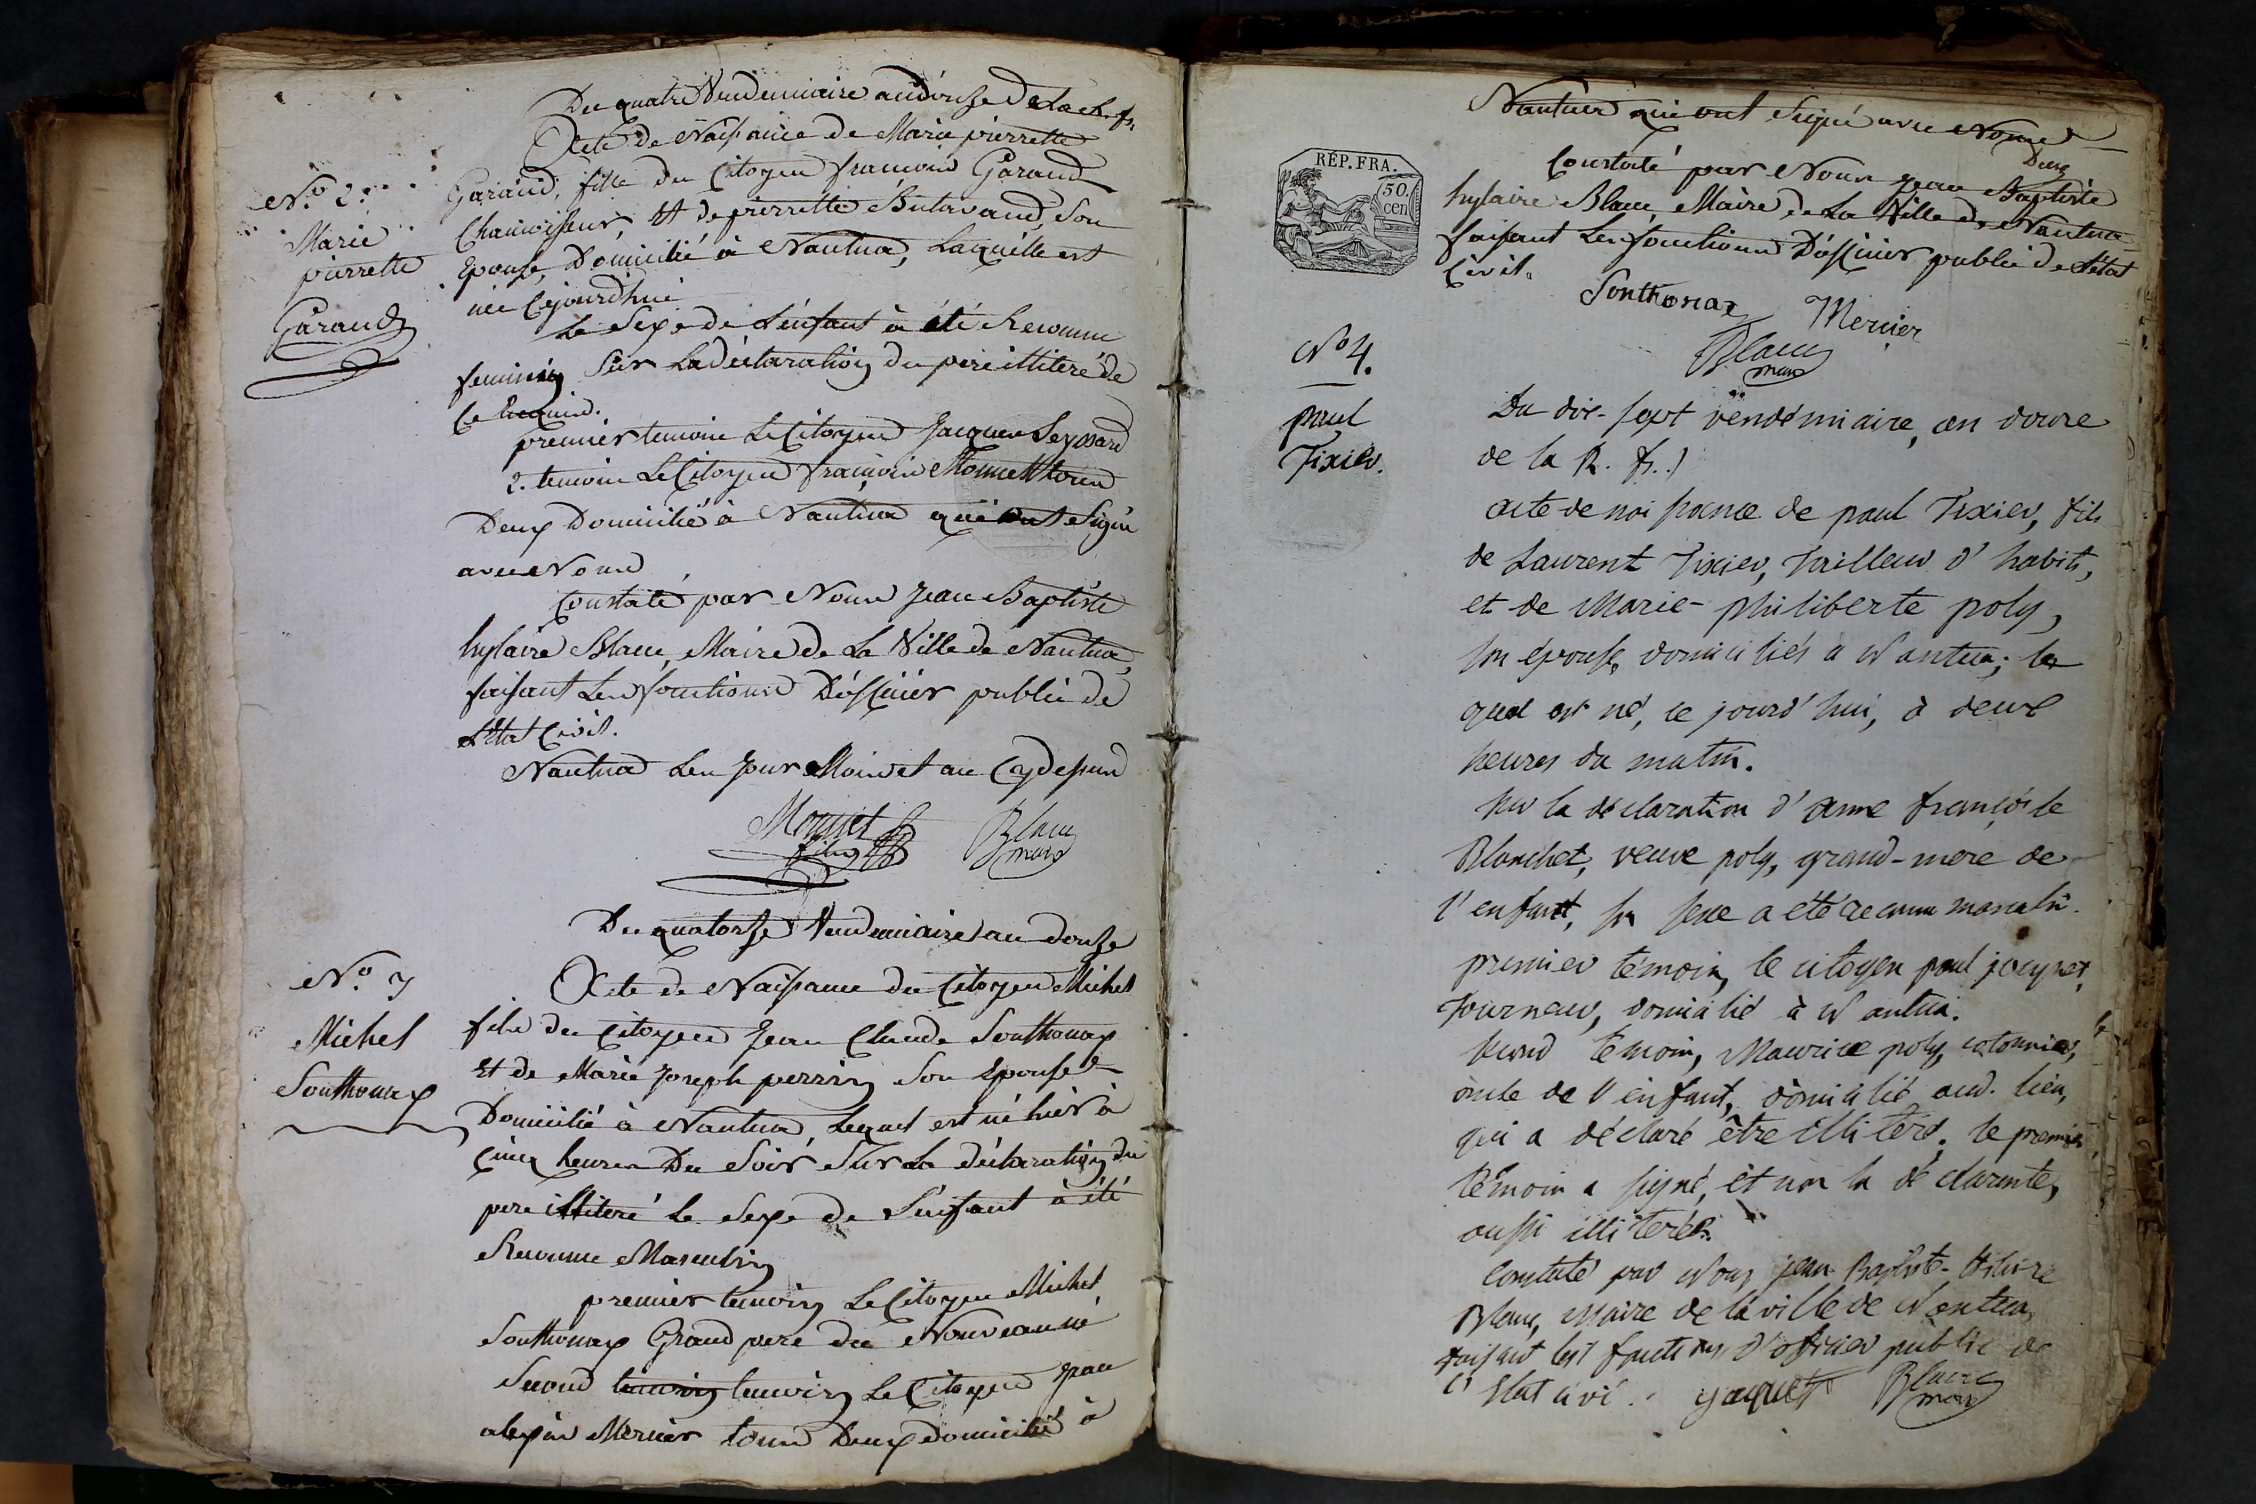 Du quatre Vendemiaire an douze de la R. fr.
N.º 2.
Marie
pierrette
Garaud
Acte de Naissance de Marie pierrette
Garaud, fille du Citoyen francois Garaud
Chamoiseur, Et de pierrette Butavand, Son
Epouse, Domicilié à Nantua, Laquelle est
née Cejourdhui
Le Sexe de L'enfant à été Reconnu
feminin Sur La déclaration du pere illiteré de
Ce Requis.
premier temoin Le Citoyen Jacques Seyssard
2. temoin Le Citoyen francois Monnet tous
Deux Domicilié à Nantua qui ont Signé
avec Nous
Constaté par Nous Jean Baptiste
hylaire Blanc, Maire de La Ville de Nantua,
faisant Les fonctions D'officier public de
L'Etat Civil.
Nantua Les Jour Mois et an Cy dessus
Monnet
fils
Blanc
maire
Du quatorze Vendemiaire an douze
N.º 3
Michel
Sonthonax
Acte de Naissance du Citoyen Michel
fils du Citoyen Jean Claude Sonthonax
Et de Marie Joseph perrin Son Epouse
Domicilié à Nantua Lequel est né hier à
Cinq heures Du Soir Sur La déclaration du
pere illiteré Le Sexe de L'enfant à été
Reconnu Masculin
premier temoin Le Citoyen Michel
Sonthonax Grand pere du Nouveau né
Second temoin temoin Le Citoyen Jean
alexis Mercier tous Deux domicilié à
Nantua qui ont Signé avec Nous
Constaté par Nous Jean Baptiste
hylaire Blanc Maire de La Ville de Nantua
faisant Les fonctions D'officier public de L'état
Civil.
RÉP. FRA.
50.
cen
Sonthonax Mercier
Blanc
maire
Nº 4.
paul
Tixier.
Du dix-sept vendémiaire, an douze
de la R. fr.)
acte de naissance de paul Tixier, fils
de Laurent Tixier, Tailleur d'habits,
et de Marie-philiberte poly,
son épouse, domiciliés à Nantua; le
quel est né, ce jourd'hui, à deux
heures du matin.
sur la déclaration d'anne françoise
Blanchet, veuve poly, grand-mere de
l'enfant, son sexe a été reconnu masculin.
premier témoin, le citoyen paul
Tourneur, domicilié à Nantua.
second témoin, Maurice poly, cotonnier,
oncle de l'enfant, domicilié aud. lieu,
qui a déclaré être illiteré. le premier
témoin a signé, et non la déclarante,
aussi illiterée.
Constaté par Nous, jean Baptiste-hilaire
Blanc, Maire de la ville de Nantua,
faisant les fonctions d'officier public de
l'état civil. Jaquet Blanc
maire